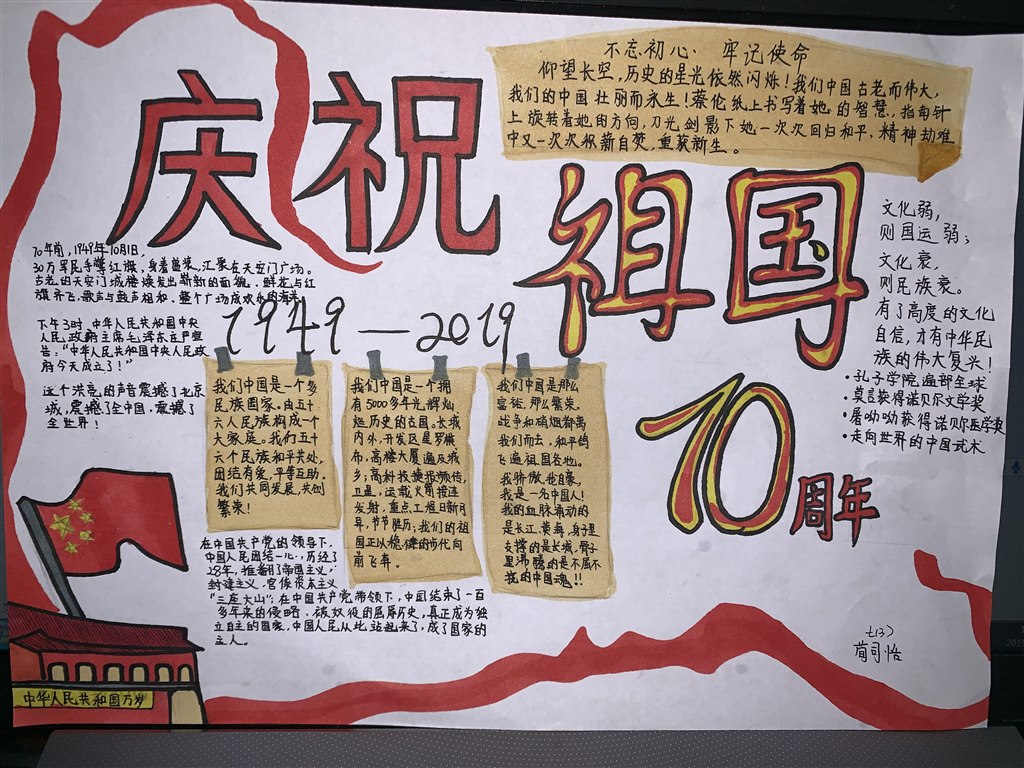 庆祝
祖国
70
周年
1949—2019
不忘初心·牢记使命
仰望长空,历史的星光依然闪烁!我们中国古老而伟大,
我们的中国壮丽而永生!蔡伦纸上书写着她的智慧,指南针
上旋转着她的方向,刀光剑影下她一次次回归和平,精神劫难
中又一次次积薪自焚,重获新生。
70年前,1949年10月1日,
30万军民手擎红旗,身着盛装,汇聚在天安门广场。
古老的天安门城楼焕发出崭新的面貌,鲜花与红
旗齐飞,歌声与鼓声相和,整个广场成欢乐的海洋
下午3时,中华人民共和国中央
人民政府主席毛泽东庄严宣
告:“中华人民共和国中央人民政
府今天成立了!”
这个洪亮的声音震撼了北京
城,震撼了全中国,震撼了
全世界!
我们中国是一个多
民族国家。由五十
六个民族构成一个
大家庭。我们五十
六个民族和平共处,
团结有爱,平等互助。
我们共同发展,共创
繁荣!
我们中国是一个拥
有5000多年光辉灿
烂历史的古国。长城
内外,开发区星罗棋
布,高楼大厦遍及城
乡;高科技捷报频传,
卫星,运载火箭接连
发射,重点工程日新月
异,节节胜历;我们的祖
国正以稳健的步代向
前飞奔。
我们中国是那么
富裕,那么繁荣。
战争和硝烟都离
我们而去,和平鸽
飞遍祖国各地。
我骄傲,我自豪,
我是一名中国人!
我的血脉涌动的
是长江、黄海,身子里
支撑的是长城,骨子
里沸腾的是不屈不
挠的中国魂!!
在中国共产党的领导下,
中国人民团结一心,历经了
28年,推翻了帝国主义,
封建主义,官僚资本主义
“三座大山”;在中国共产党带领下,中国结束了一百
多年来的侵略、被奴役的屈辱历史,真正成为独
立自主的国家,中国人民从此站起来了,成了国家的
主人。
文化弱,
则国运弱;
文化衰,
则民族衰。
有了高度的文化
自信,才有中华民
族的伟大复兴!
·孔子学院遍部全球
·莫言获得诺贝尔文学奖
·屠呦呦获得诺贝尔医学奖
·走向世界的中国武术
七(3)
荀司怡
中华人民共和国万岁